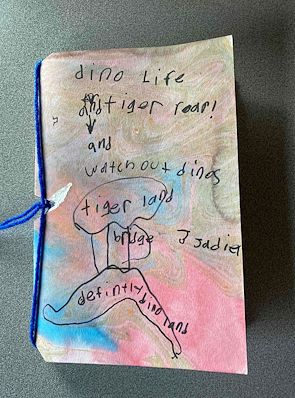 dino Life
and tiger roar!
and
watch out dinos
tiger land
bridge
defintly dino land